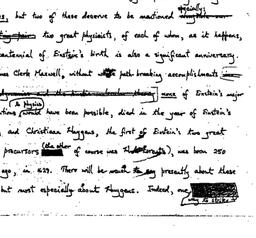 s, but two of these deserve to be mentioned especially:
two great physicists, of each of whom, as it happens,
centennial of Einstein's birth is also a significant anniversary.
mes Clerk Maxwell, without path breaking accomplishments
none of Einstein's major
in physics
tions would have been possible, died in the year of Einstein's
, and Christiaan Huygens, the first of Einstein's two great
precursors (the other of course was ), was born 250
ago, in 1629. There will be to say presently about these
but most especially about Huygens. Indeed, one